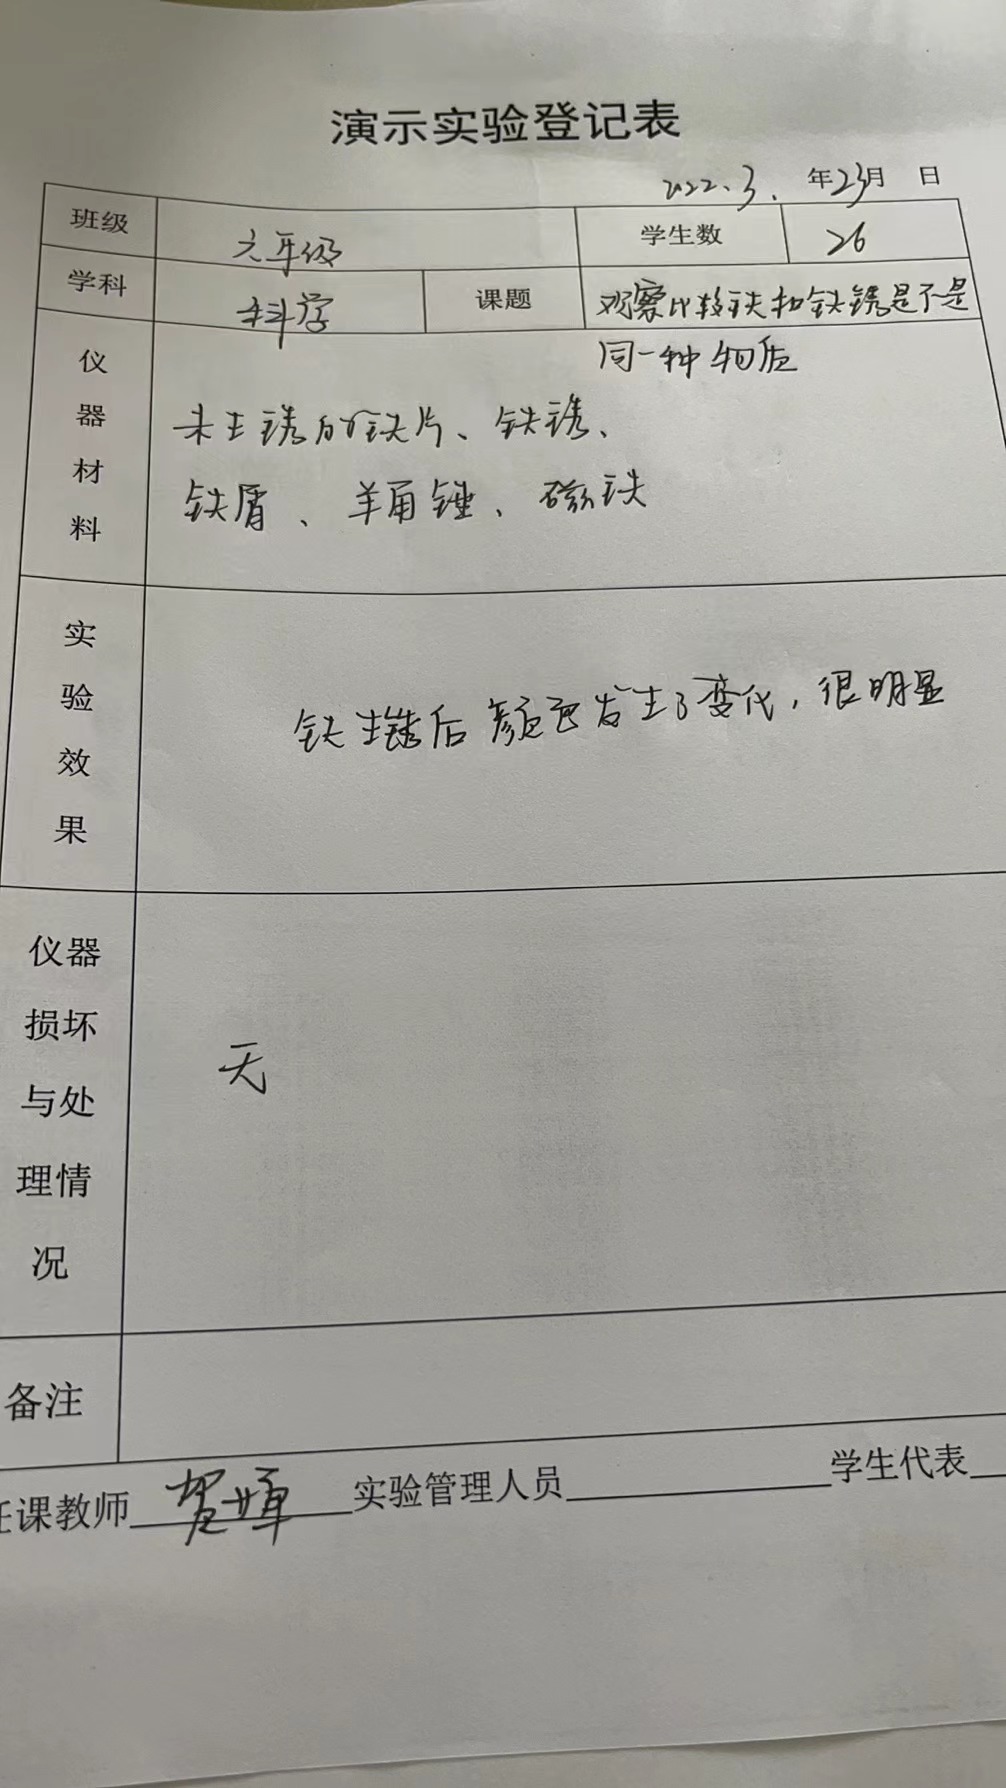 演示实验登记表
2022.3. 年23月 日
班级 六年级 学生数 26
学科 科学 课题 观察比较铁和铁锈是不是
同一种物质
仪器材料
未生锈的铁片、铁锈、
铁屑、羊角锤、磁铁
实验效果
铁生锈后颜色发生了变化,很明显
仪器
损坏
与处
理情
况
无
备注
任课教师 实验管理人员 学生代表